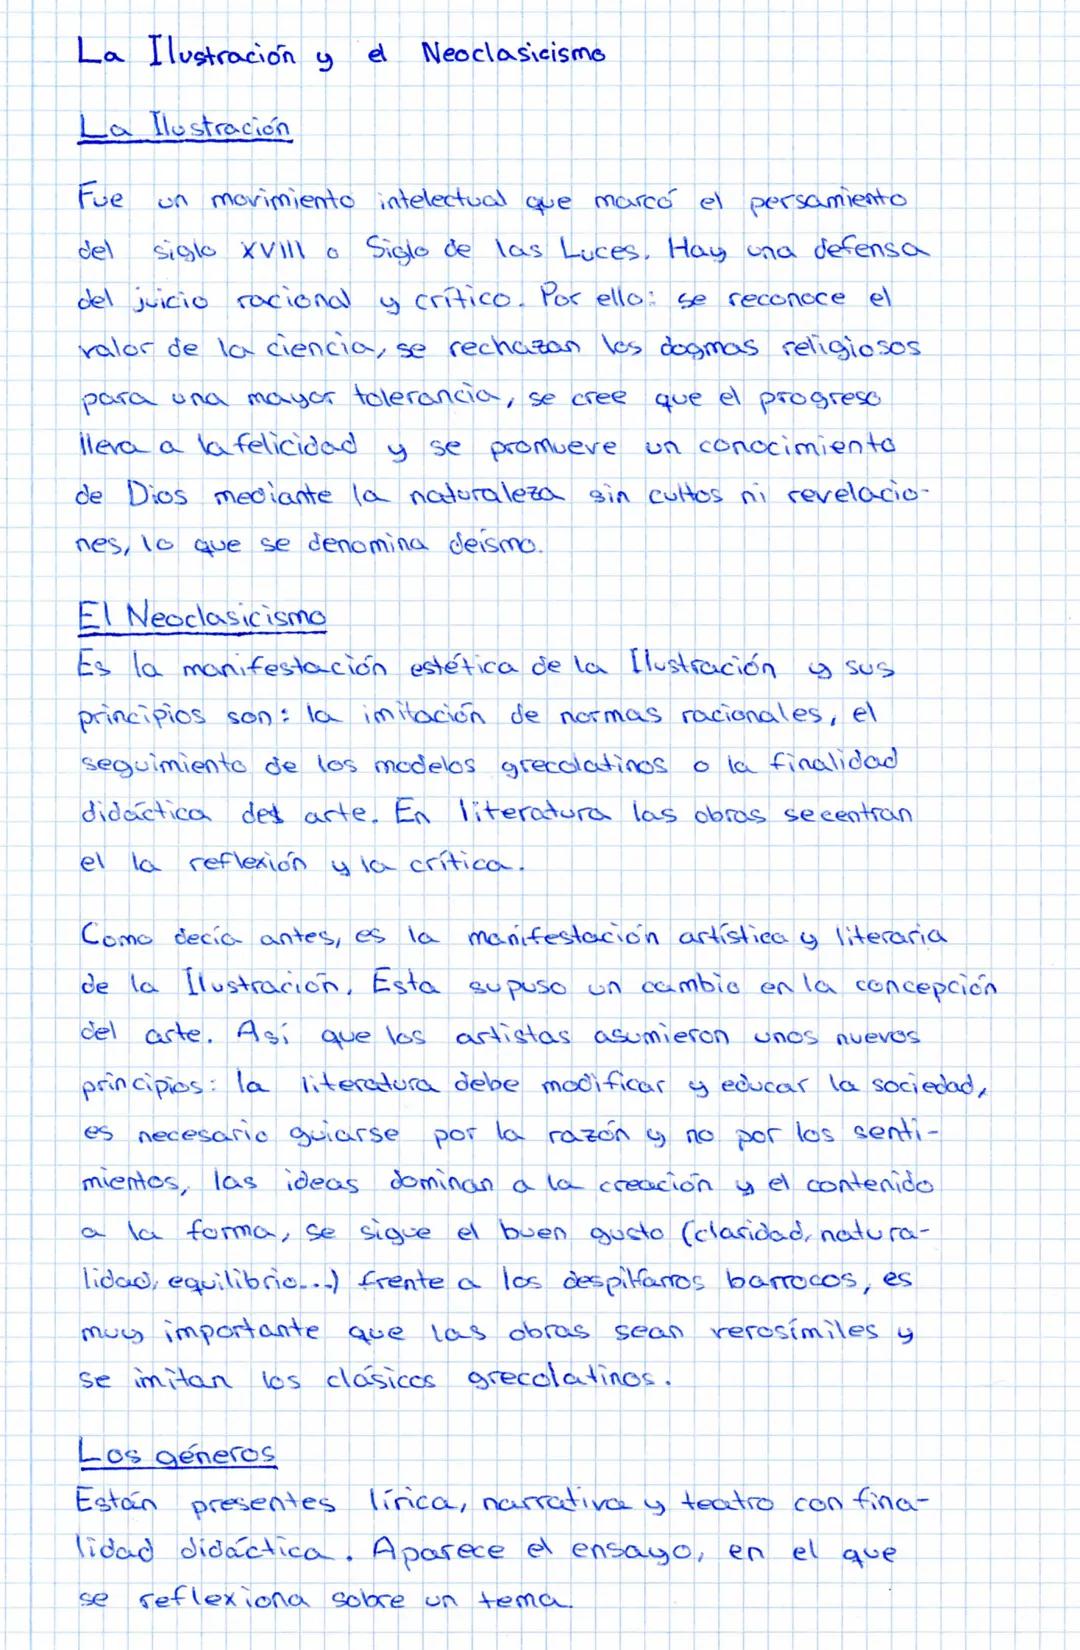 La Ilustración y el Neoclasicismo
La Ilustración
Fue un movimiento intelectual que marcó el pensamiento
del siglo XVIII o Siglo de las Luces. Hay una defensa
del juicio racional y crítico. Por ello: se reconoce el
valor de la ciencia, se rechazan los dogmas religiosos
para una mayor tolerancia, se cree que el progreso
lleva a la felicidad y se promueve un conocimiento
de Dios mediante la naturaleza sin cultos ni revelacio-
nes, lo que se denomina deísmo.
El Neoclasicismo
Es la manifestación estética de la Ilustración y sus
principios son: la imitación de normas racionales, el
seguimiento de los modelos grecolatinos o la finalidad
didáctica del arte. En literatura las obras se centran
el la reflexión y la crítica.
Como decía antes, es la manifestación artística y literaria
de la Ilustración. Esta supuso un cambio en la concepción
del arte. Así que los artistas asumieron unos nuevos
principios: la literatura debe modificar y educar la sociedad,
es necesario guiarse por la razón y no por los senti-
mientos, las ideas dominan a la creación y el contenido
a la forma, se sigue el buen gusto (claridad, natura-
lidad, equilibrio...) frente a los despilfarros barrocos, es
muy importante que las obras sean verosímiles y
se imitan los clásicos grecolatinos.
Los géneros
Están presentes lírica, narrativa y teatro con fina-
lidad didáctica. Aparece el ensayo, en el que
se reflexiona sobre un tema.